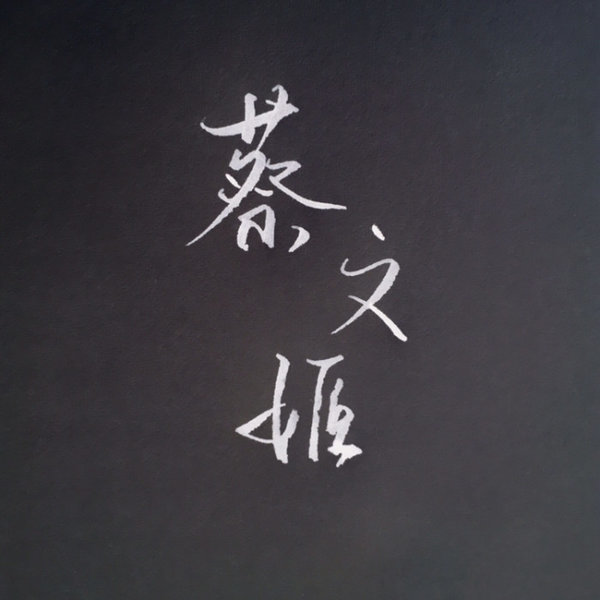 蔡
文
姬